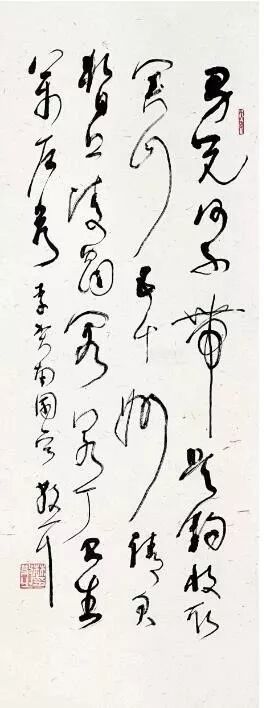 男儿何不带吴钩收取
关山五十州请君
暂上凌烟阁若个书生
万户侯 李贺南园